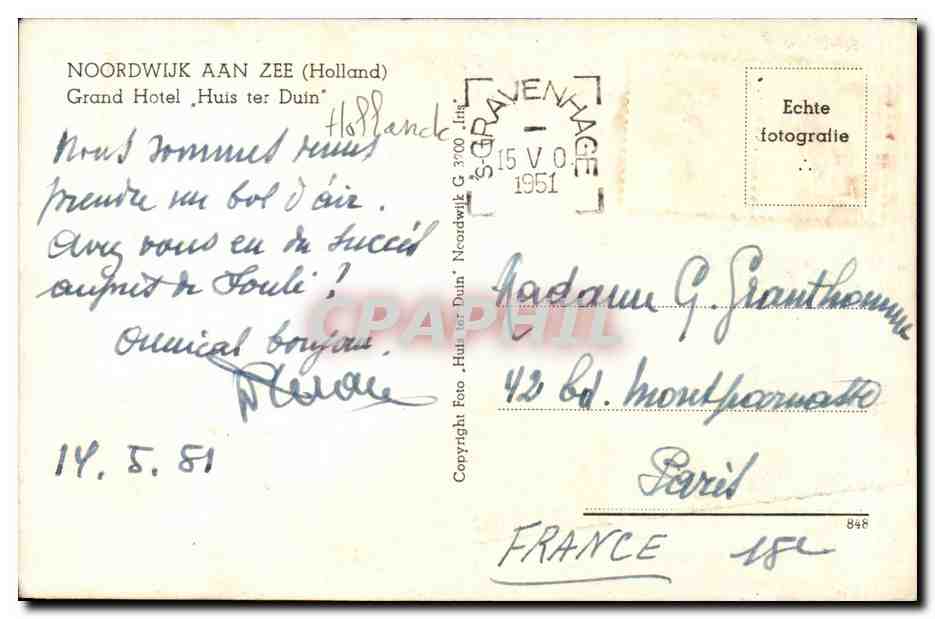 NOORDWIJK AAN ZEE (Holland)
Grand Hotel „Huis ter Duin"
Hollande
Nous sommes venus
prendre un bol d'air.
Avez vous eu du succès
auprès de ?
Amical bonjour.
14. 5. 51
Copyright Foto „Huis ter Duin" Noordwijk G 3700 „Iris"
's-GRAVENHAGE
15 V 0
1951
Echte
fotografie
Madame G. Granthomme
42 bd. Montparnasse
Paris
848
FRANCE 15e
CPAPHIL